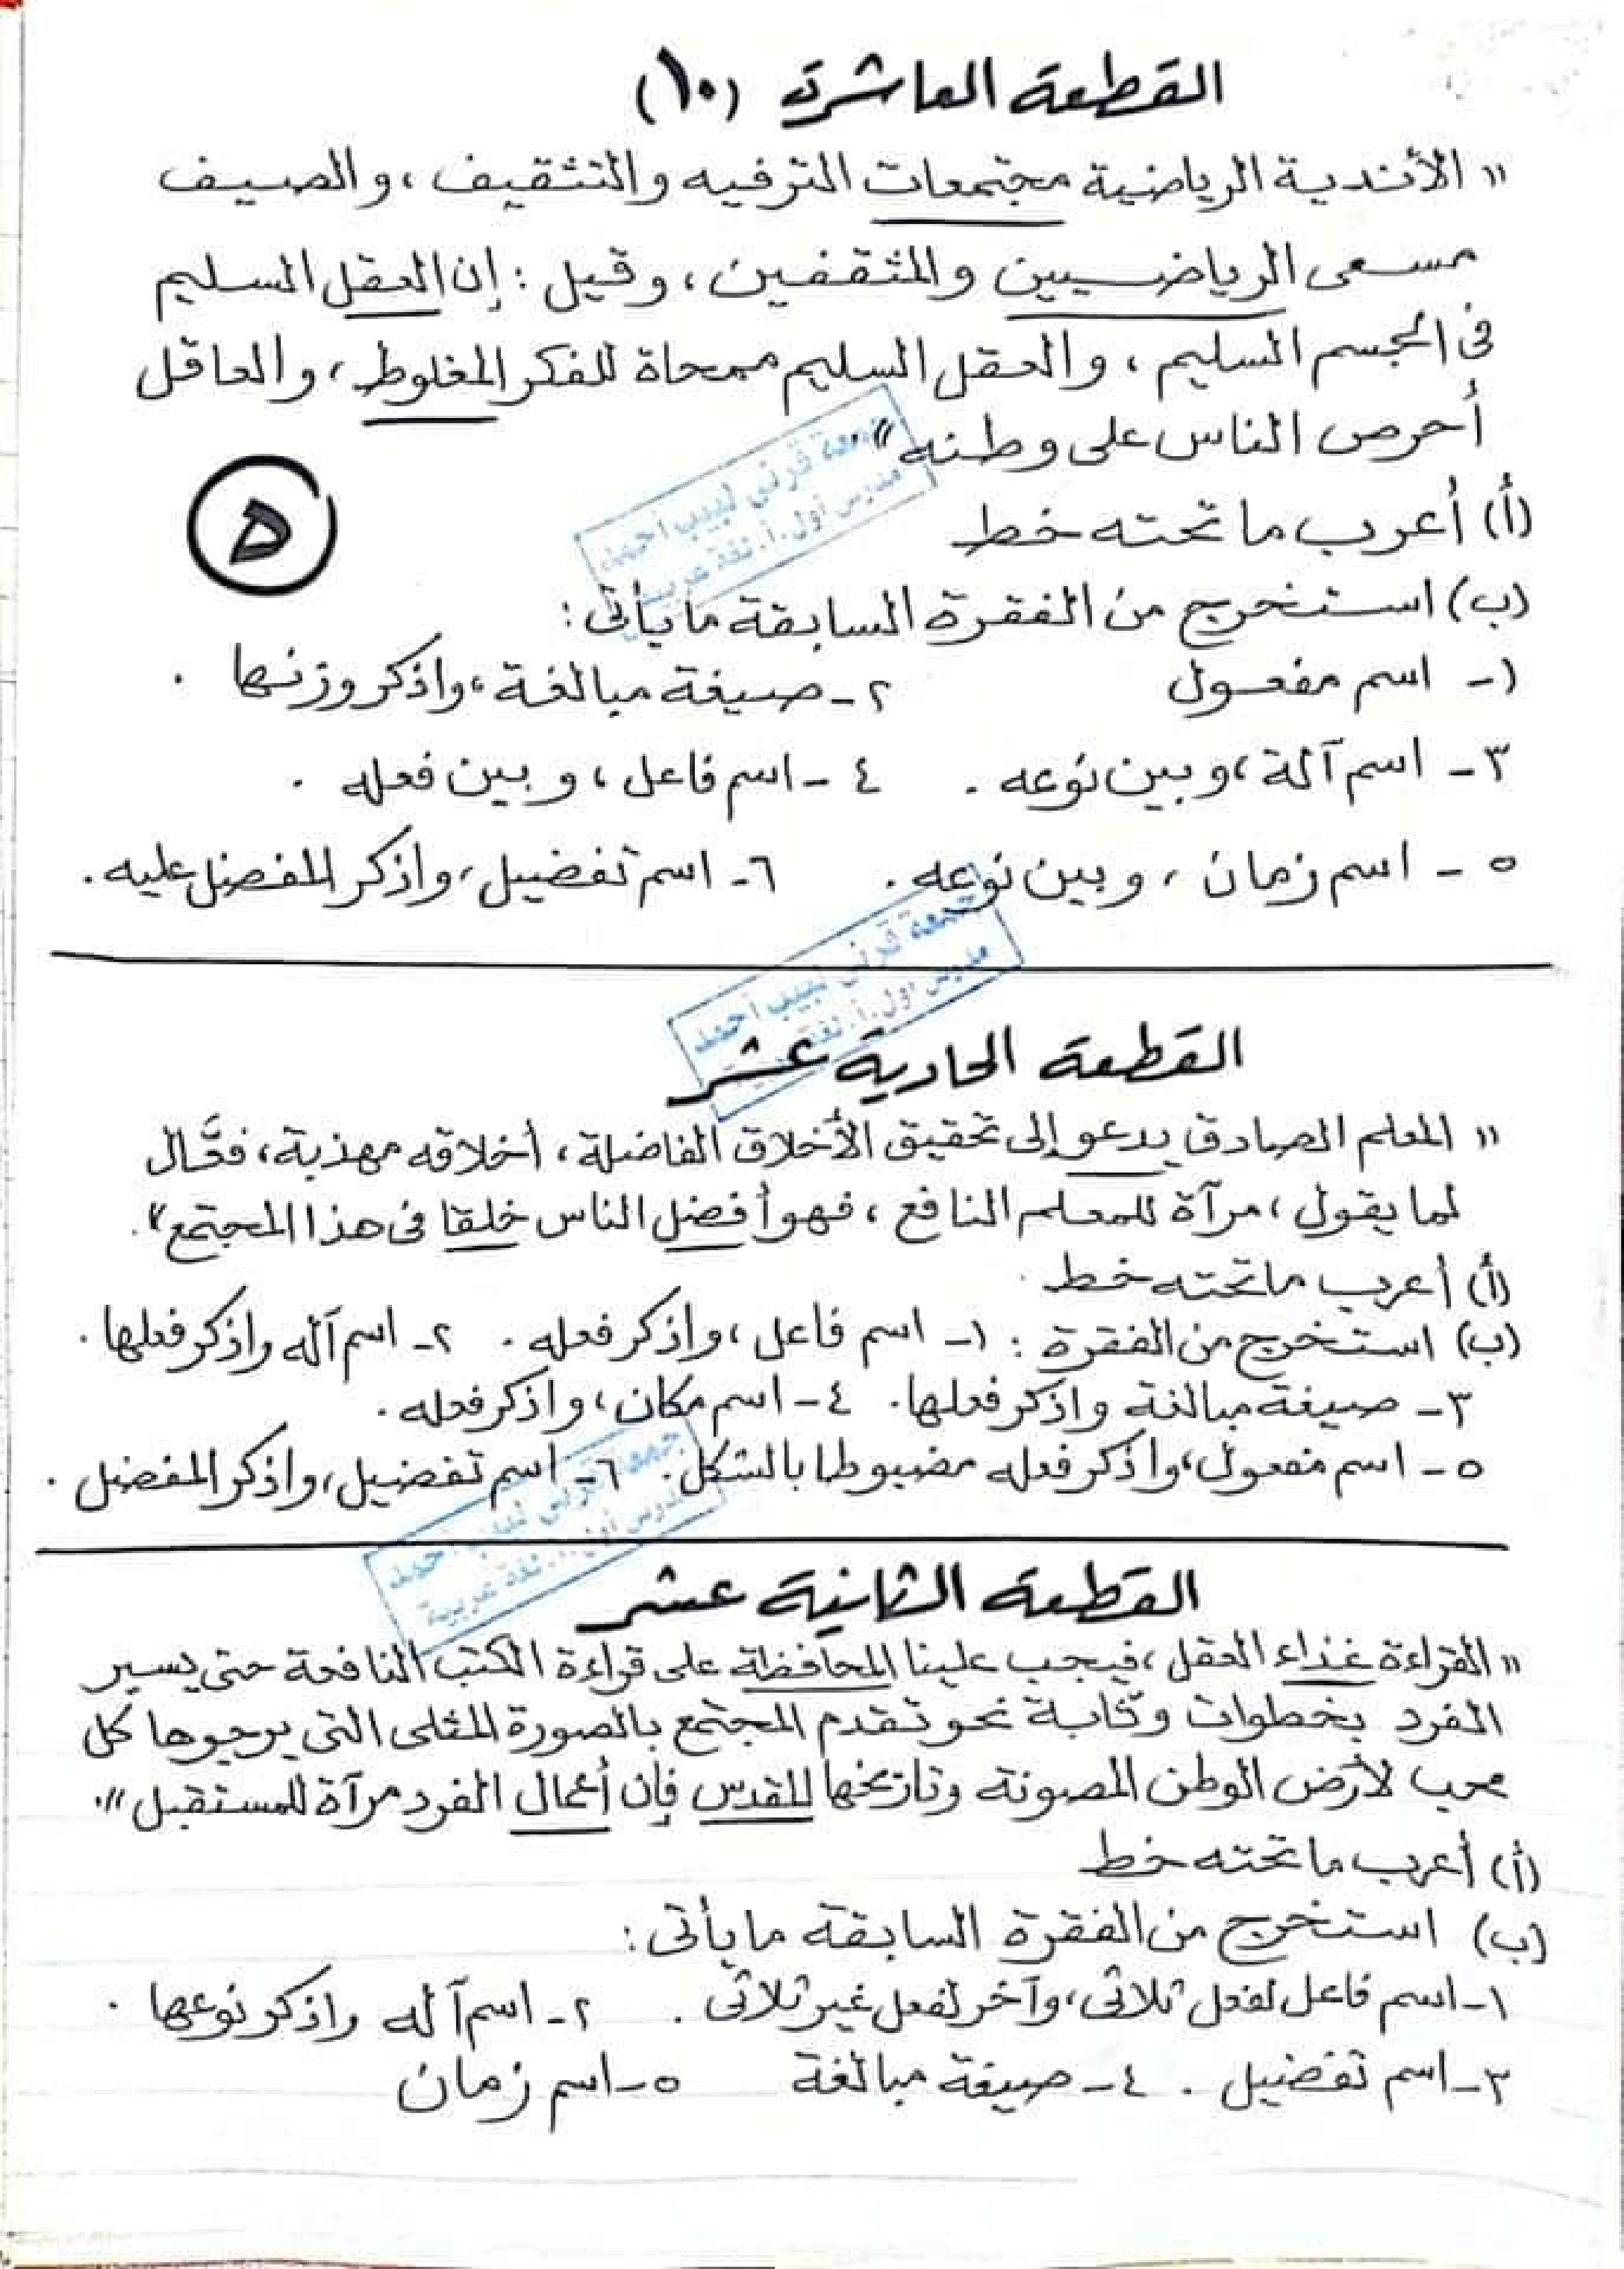 القطعة العاشرة (١٠)
" الأندية الرياضية مجتمعات الترفيه والتثقيف ، والصيف
مسعى الرياضيين والمثقفين ، وقيل : إن العقل السليم
فى الجسم السليم ، والعقل السليم ممحاة للفكر المغلوط ، والعاقل
أحرص الناس على وطنه "
جمعة قرنى لبيب أحمد
مدرس أول . أ . لغة عربية
٥
(أ) أعرب ما تحته خط
(ب) استخرج من الفقرة السابقة ما يأتى :
١- اسم مفعول ٢- صيغة مبالغة ، واذكر وزنها .
٣- اسم آلة ، وبين نوعه . ٤- اسم فاعل ، وبين فعله .
٥- اسم زمان ، وبين نوعه . ٦- اسم تفضيل ، واذكر المفضل عليه .
جمعة قرنى لبيب أحمد
مدرس أول . أ . لغة
القطعة الحادية عشر
" المعلم الصادق يدعو إلى تحقيق الأخلاق الفاضلة ، أخلاقه مهذبة ، فعَّال
لما يقول ، مرآة للمعلم النافع ، فهو أفضل الناس خلقا فى هذا المجتمع " .
(أ) أعرب ما تحته خط .
(ب) استخرج من الفقرة : ١- اسم فاعل ، واذكر فعله . ٢- اسم آله واذكر فعلها .
٣- صيغة مبالغة واذكر فعلها . ٤- اسم مكان ، واذكر فعله .
٥- اسم مفعول ، واذكر فعله مضبوطا بالشكل . ٦- اسم تفضيل ، واذكر المفضل .
جمعة قرنى لبيب أحمد
مدرس أول . أ . لغة عربية
القطعة الثانية عشر
" القراءة غذاء العقل ، فيجب علينا المحافظة على قراءة الكتب النافعة حتى يسير
الفرد بخطوات وثابة نحو تقدم المجتمع بالصورة المثلى التى يرجوها كل
محب لأرض الوطن المصونة وتاريخها للقدس فإن أعمال الفرد مرآة للمستقبل " .
(أ) أعرب ما تحته خط
(ب) استخرج من الفقرة السابقة ما يأتى :
١- اسم فاعل لفعل ثلاثى ، وآخر لفعل غير ثلاثى . ٢- اسم آله واذكر نوعها .
٣- اسم تفضيل . ٤- صيغة مبالغة ٥- اسم زمان